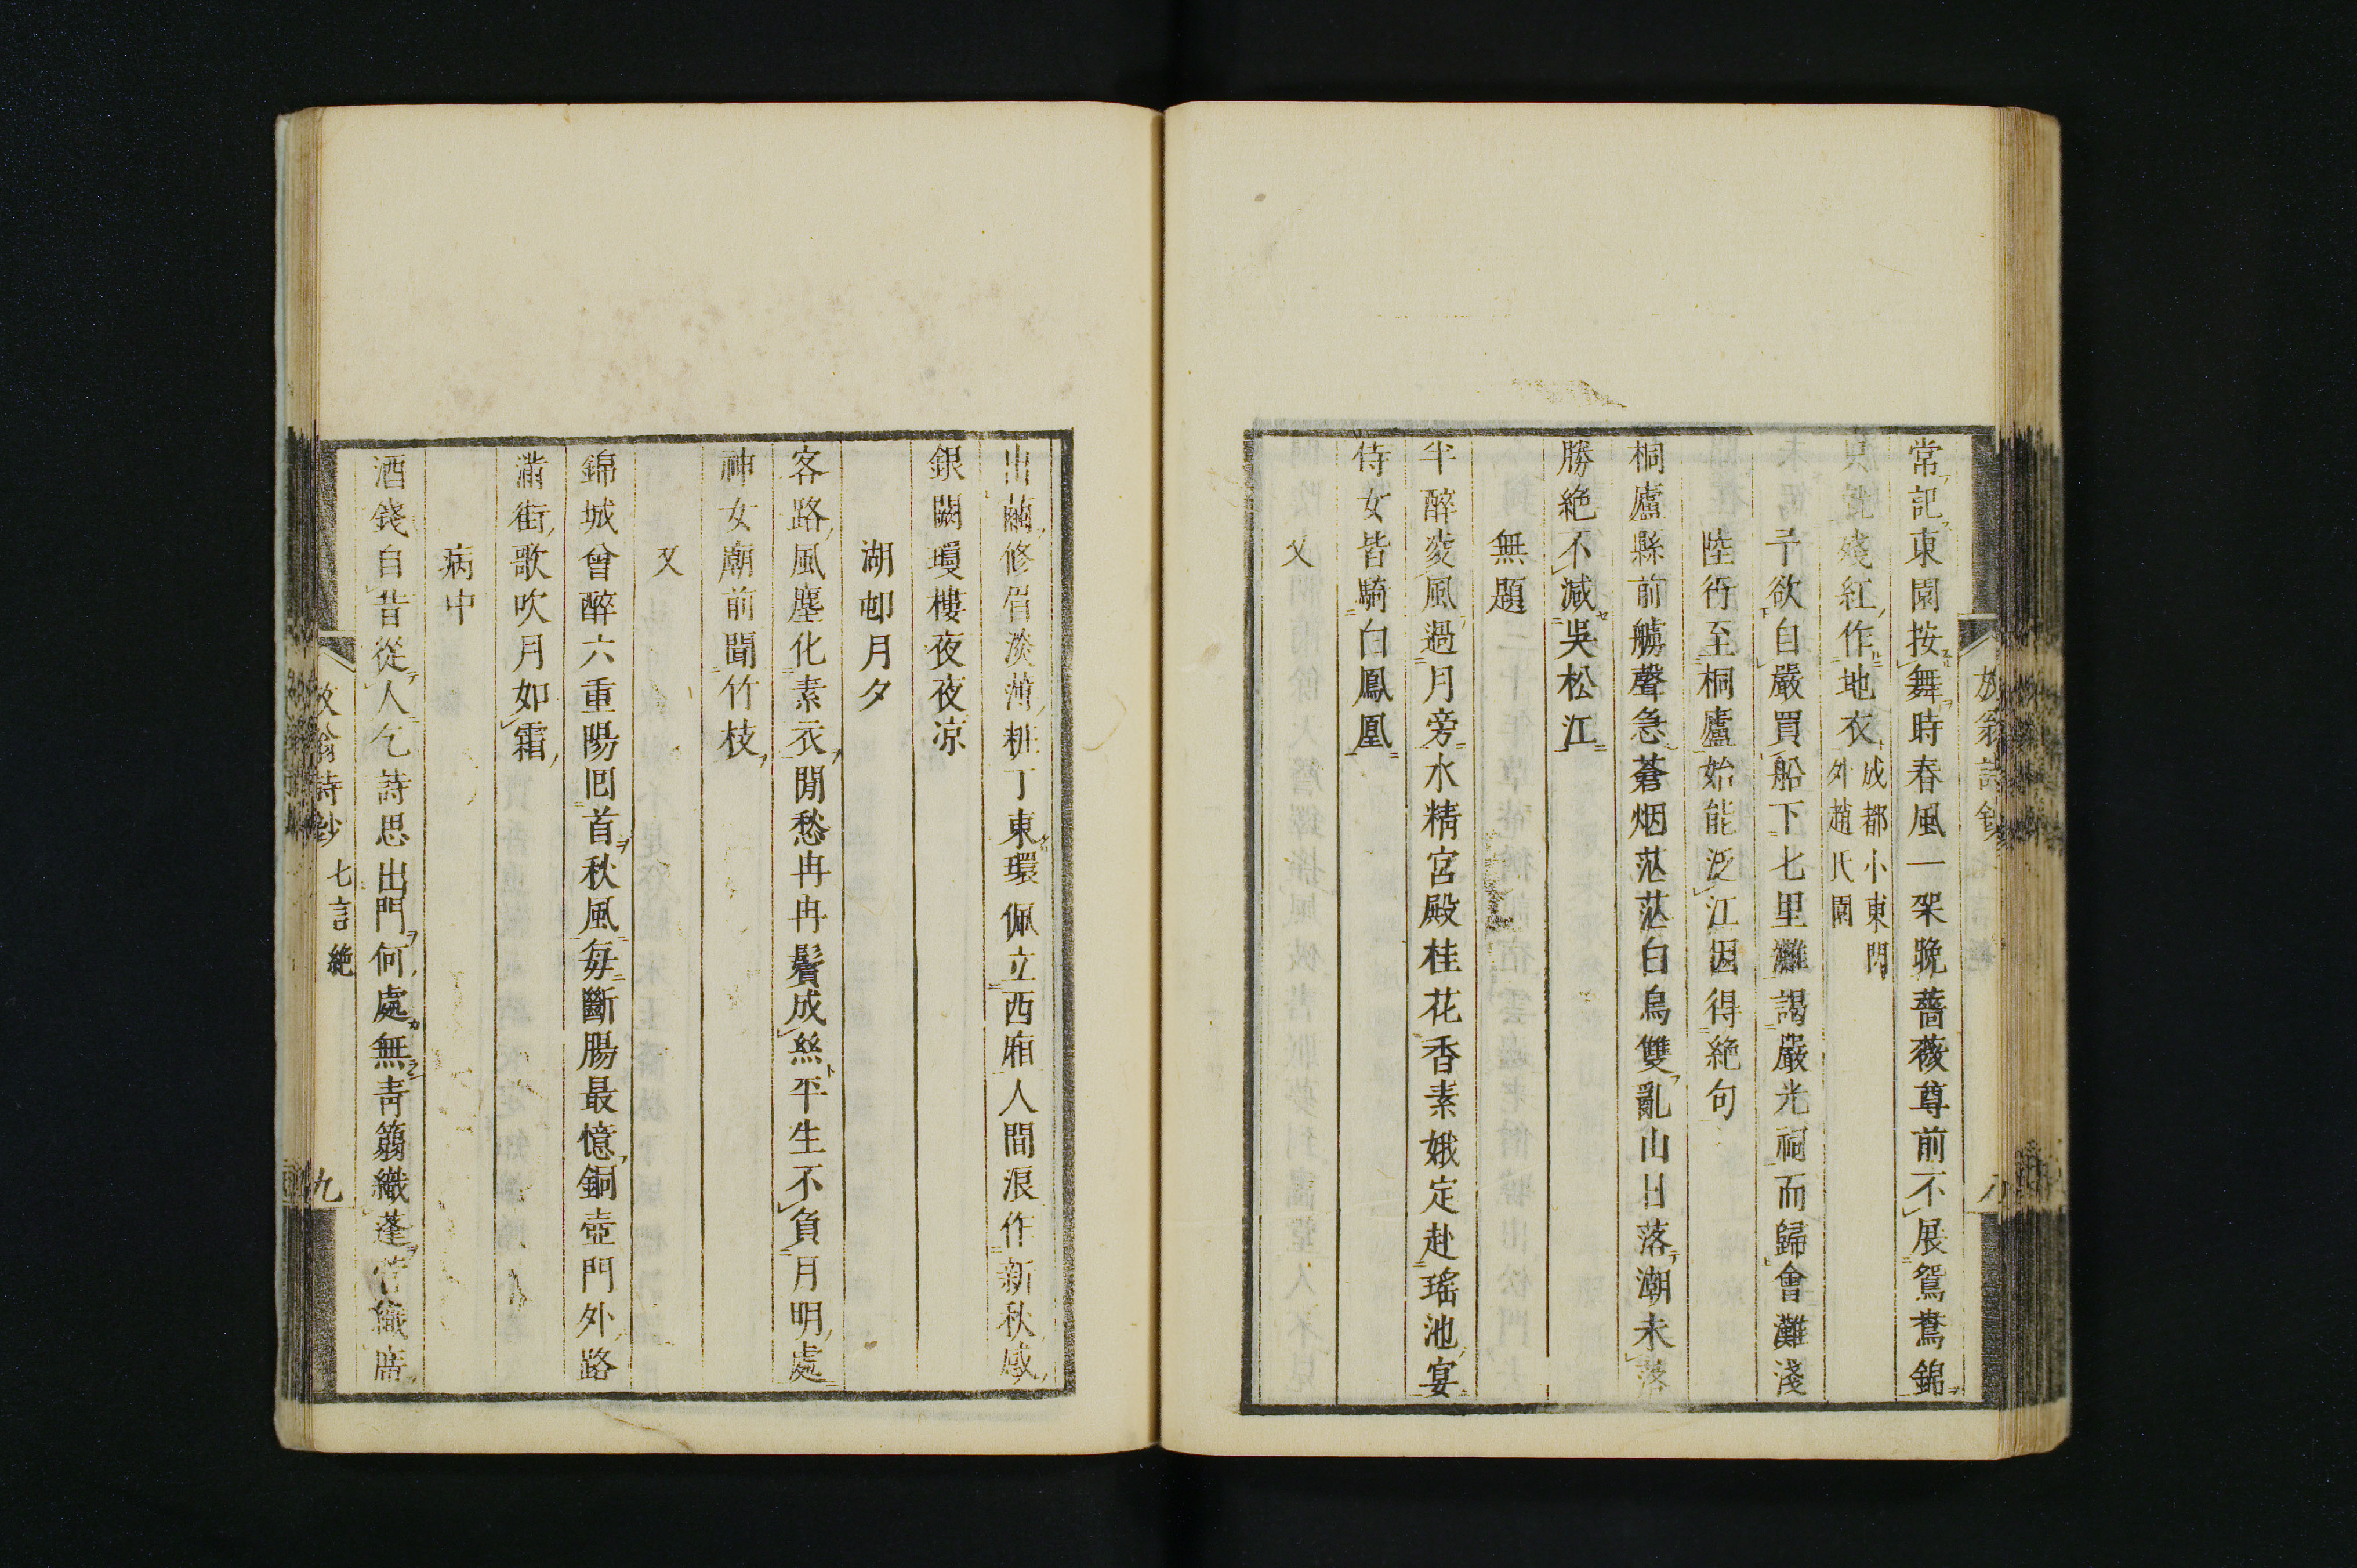 常記東園按舞時春風一架晚薔薇尊前不展鴛鴦錦
只就殘紅作地衣成都小東門外趙氏園
予欲自嚴買船下七里灘謁嚴光祠而歸會灘淺
陸行至桐廬始能泛江因得絶句
桐廬縣前艣聲急蒼烟茫茫白鳥雙亂山日落潮未落
勝絶不減吳松江
無題
半醉凌風過月旁水精宮殿桂花香素娥定赴瑤池宴
侍女皆騎白鳳凰
又
放翁詩鈔
八
出繭修眉淡薄粧丁東環佩立西廂人間浪作新秋感
銀闕瓊樓夜夜凉
湖邨月夕
客路風塵化素衣閒愁冉冉鬢成絲平生不負月明處
神女廟前聞竹枝
又
錦城曾醉六重陽回首秋風每斷腸最憶銅壺門外路
滿街歌吹月如霜
病中
酒錢自昔從人乞詩思出門何處無青篛織蓬管織席
放翁詩鈔 七言絶
九